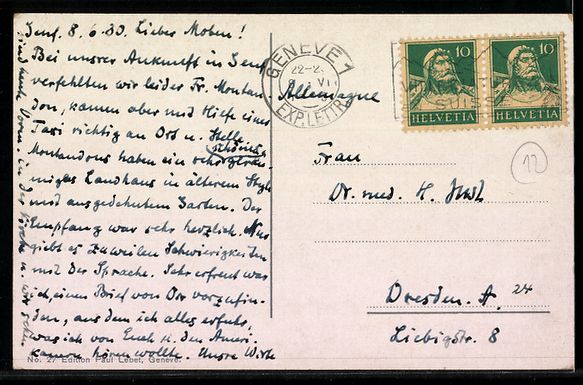 Genf. 8.6.30. Lieber Moben!
Bei unsrer Ankunft in Genf
verfehlten wir leider Fr. Montan
don, kamen aber mit Hilfe eines
Taxi richtig an Ort u. Stelle
Montandons haben ein schönes
miges Landhaus in älterem Style
und ausgedehntem Garten. Der
Empfang war sehr herzlich. Nur
giebt es zuweilen Schwierigkeiten
mit der Sprache. Sehr erfreut war
ich, einen Brief von Dir vorzufin-
den, aus dem ich alles erfuhr,
was ich von Euch u. den Ameri-
kanern hören wollte. Unsre Wirte
sind heute Vorm. in der Kirche u. wir
No. 27 Edition Paul Lebet, Genève.
GENEVE 1
EXP. LETTR.
SUISSE
10
HELVETIA
10
HELVETIA
Allemagne
12
Frau
Dr. med. H.
Dresden. A. 24
Liebigstr. 8